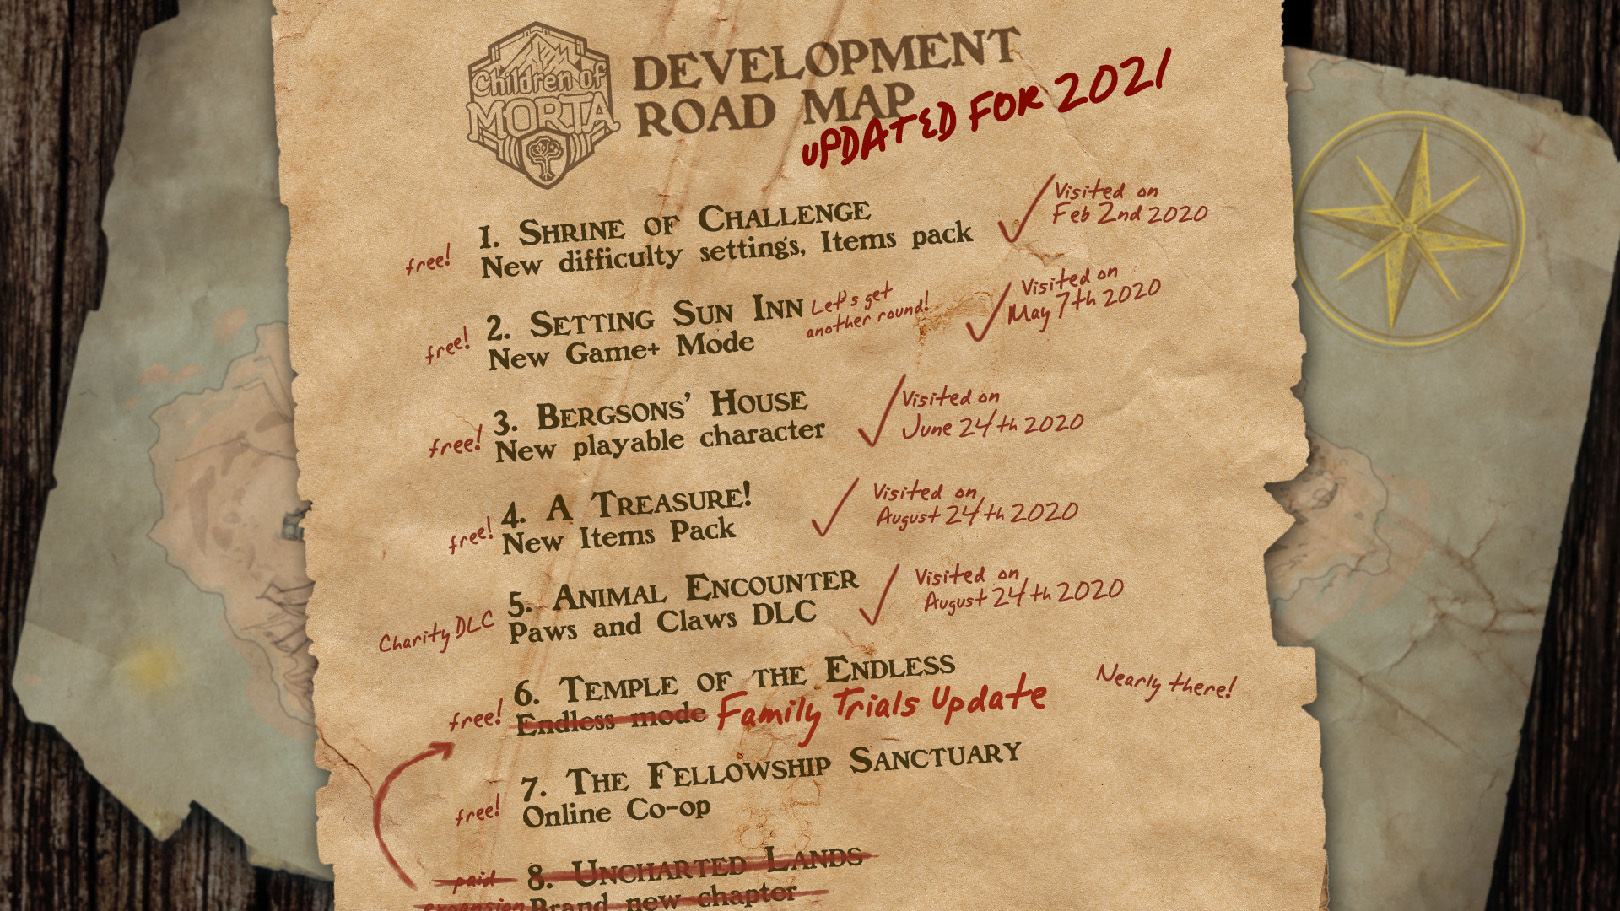 Children of
MORTA
DEVELOPMENT
ROAD MAP
UPDATED FOR 2021
free!
1. SHRINE OF CHALLENGE
New difficulty settings, Items pack
Visited on
Feb 2nd 2020
free!
2. SETTING SUN INN
New Game+ Mode
Let's get
another round!
Visited on
May 7th 2020
free!
3. BERGSONS' HOUSE
New playable character
Visited on
June 24th 2020
free!
4. A TREASURE!
New Items Pack
Visited on
August 24th 2020
Charity DLC
5. ANIMAL ENCOUNTER
Paws and Claws DLC
Visited on
August 24th 2020
free!
6. TEMPLE OF THE ENDLESS
Endless mode Family Trials Update
Nearly there!
free!
7. THE FELLOWSHIP SANCTUARY
Online Co-op
paid
expansion
8. UNCHARTED LANDS
Brand new chapter